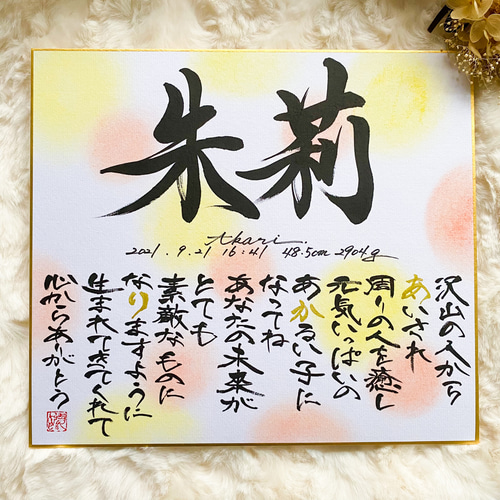 朱莉
Akari.
2021.9.21 16:41 48.5cm 2904g
沢山の人から
あいされ
周りの人を癒し
元気いっぱいの
あかるい子に
なってね
あなたの未来が
とても
素敵なものに
なりますように
生まれてきてくれて
心からありがとう